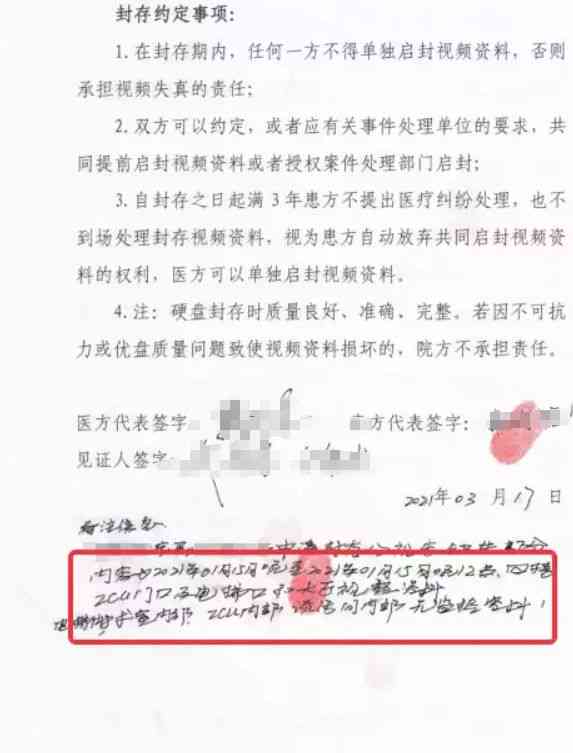 封存约定事项:
1. 在封存期内，任何一方不得单独启封视频资料，否则
承担视频失真的责任;
2. 双方可以约定，或者应有关事件处理单位的要求，共
同提前启封视频资料或者授权案件处理部门启封;
3. 自封存之日起满 3 年患方不提出医疗纠纷处理，也不
到场处理封存视频资料，视为患方自动放弃共同启封视频资
料的权利，医方可以单独启封视频资料。
4. 注: 硬盘封存时质量良好、准确、完整。若因不可抗
力或优盘质量问题致使视频资料损坏的，院方不承担责任。
医方代表签字:
方代表签字:
见证人签字:
2021年03月17日
备注信息
申请封存
内容为2021年01月15日 至2021年01月15日 12点
ICU门口及电梯口
室内部 ICU内部 无监控资料